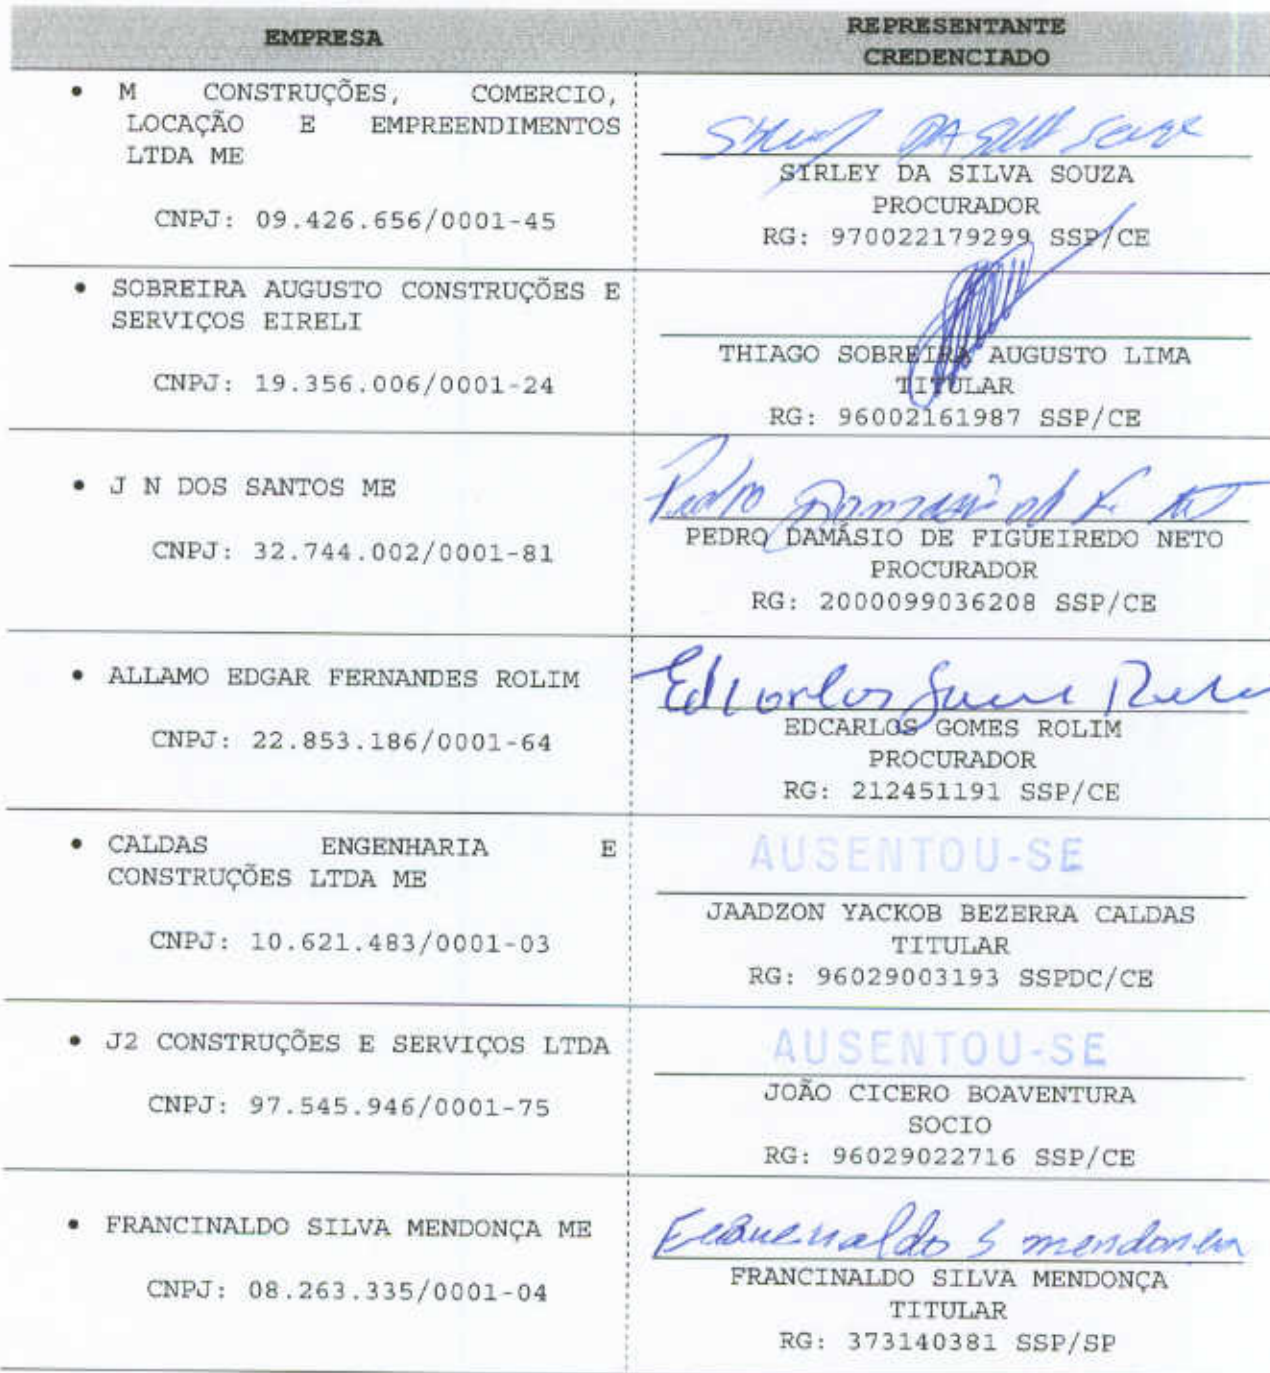 EMPRESA
REPRESENTANTE
CREDENCIADO
• M CONSTRUÇÕES, COMERCIO,
LOCAÇÃO E EMPREENDIMENTOS
LTDA ME
CNPJ: 09.426.656/0001-45
SIRLEY DA SILVA SOUZA
PROCURADOR
RG: 970022179299 SSP/CE
• SOBREIRA AUGUSTO CONSTRUÇÕES E
SERVIÇOS EIRELI
CNPJ: 19.356.006/0001-24
THIAGO SOBREIRA AUGUSTO LIMA
TITULAR
RG: 96002161987 SSP/CE
• J N DOS SANTOS ME
CNPJ: 32.744.002/0001-81
Pedro
PEDRO DAMÁSIO DE FIGUEIREDO NETO
PROCURADOR
RG: 2000099036208 SSP/CE
• ALLAMO EDGAR FERNANDES ROLIM
CNPJ: 22.853.186/0001-64
Edcarlos
EDCARLOS GOMES ROLIM
PROCURADOR
RG: 212451191 SSP/CE
• CALDAS ENGENHARIA E
CONSTRUÇÕES LTDA ME
CNPJ: 10.621.483/0001-03
AUSENTOU-SE
JAADZON YACKOB BEZERRA CALDAS
TITULAR
RG: 96029003193 SSPDC/CE
• J2 CONSTRUÇÕES E SERVIÇOS LTDA
CNPJ: 97.545.946/0001-75
AUSENTOU-SE
JOÃO CICERO BOAVENTURA
SOCIO
RG: 96029022716 SSP/CE
• FRANCINALDO SILVA MENDONÇA ME
CNPJ: 08.263.335/0001-04
S mendonça
FRANCINALDO SILVA MENDONÇA
TITULAR
RG: 373140381 SSP/SP